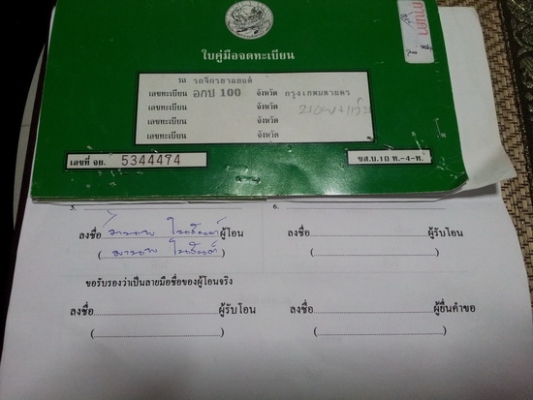 ใบคู่มือจดทะเบียน
รถ รถจักรยานยนต์
เลขทะเบียน อกป 100 จังหวัด กรุงเทพมหานคร
เลขทะเบียน จังหวัด
เลขทะเบียน จังหวัด
เลขทะเบียน จังหวัด
เลขที่ จย. 5344474
ขส.บ.18 ท.-4-ท.
ลงชื่อ ผู้โอน ลงชื่อ ผู้รับโอน
ขอรับรองว่าเป็นลายมือชื่อของผู้โอนจริง
ลงชื่อ ผู้รับโอน ลงชื่อ ผู้ยื่นคำขอ